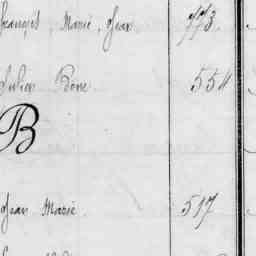 François, Marie, Jean 773
Julien Pône 554
B
Jean Marie 517